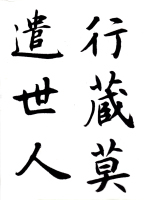 行蔵莫
遣世人